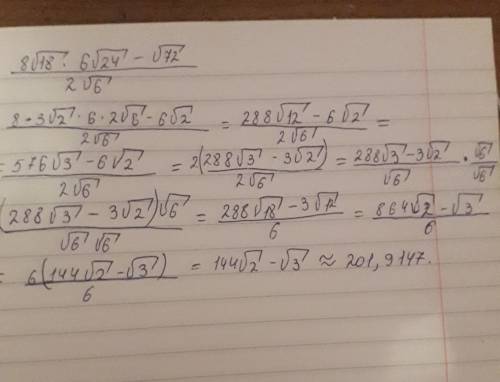 8√18 · 6√24 − √72 / 2√6
8·3√2 · 6 · 2√6 − 6√2 / 2√6 = 288√12 − 6√2 / 2√6 =
= 576√3 − 6√2 / 2√6 = 2(288√3 − 3√2) / 2√6 = 288√3 − 3√2 / √6 · √6 / √6
(288√3 − 3√2)√6 / √6 √6 = 288√18 − 3√12 / 6 = 864√2 − √3 / 6
= 6(144√2 − √3) / 6 = 144√2 − √3 ≈ 201,9147.